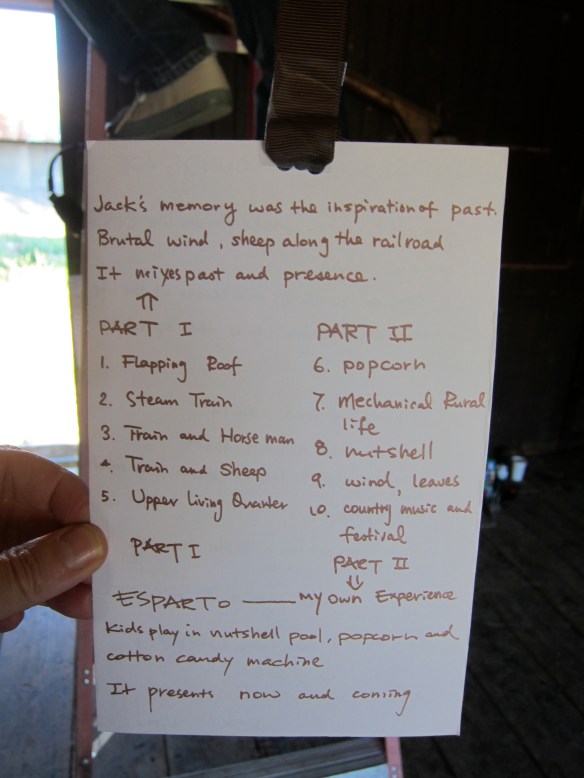 Jack's memory was the inspiration of past.
Brutal wind, sheep along the railroad
It past and presence.
⇑
PART I
1. Flapping Roof
2. Steam Train
3. Train and Horseman
4. Train and Sheep
5. Upper Living Quarter
PART I
PART II
6. popcorn
7. Mechanical Rural
life
8. nutshell
9. wind, leaves
10. country music and
festival
PART II
⇓
ESPARTO — My own Experience
Kids play in nutshell pool, popcorn and
cotton candy machine
It presents now and coming